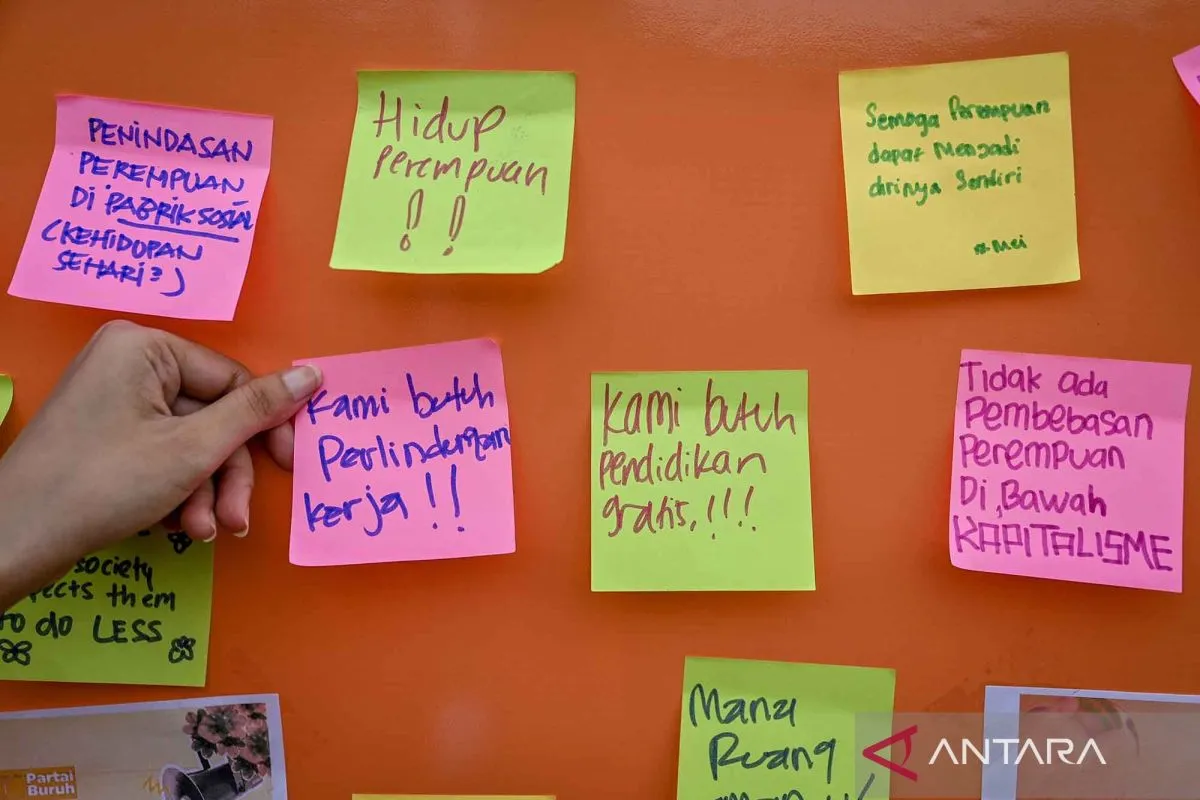 PENINDASAN
PEREMPUAN
DI PABRIK SOSIAL
(KEHIDUPAN
SEHARI²)
Hidup
perempuan
!!
Semoga Perempuan
dapat Menjadi
dirinya Sendiri
#Mei
Kami butuh
Perlindungan
kerja!!
Kami butuh
pendidikan
gratis,!!!
Tidak ada
Pembebasan
Perempuan
Di Bawah
KAPITALISME
society
them
to do LESS
Mana
Ruang
Partai
Buruh
ANTARA